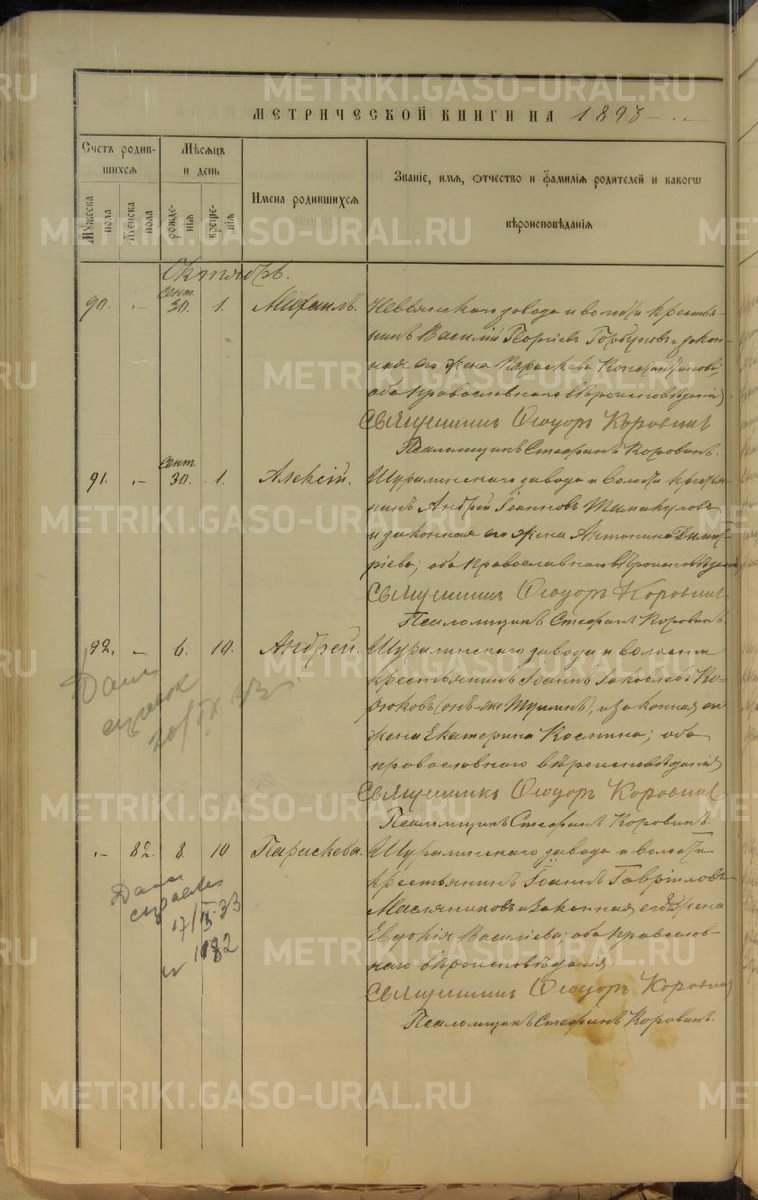 МЕТРИЧЕСКОЙ КНИГИ НА 1893
Счетъ родив-
шихся
Мѣсяцъ
и день
Имена родившихся
Званіе, имя, отчество и фамилія родителей и какого
вѣроисповѣданія
Мужеска
пола
Женска
пола
рожде-
нія
креще-
нія
Октябрь.
90. Сент. 30. 1. Михаилъ. Невьянскаго завода и волости кресть-
янинъ Василій Георгіевъ Горбуновъ и закон-
ная его жена Параскева Константинова;
оба православнаго вѣроисповѣданія
Священникъ Ѳеодоръ Коровинъ
Псаломщикъ Стефанъ Коровинъ.
91. Сент. 30. 1. Алексій. Шуралинскаго завода и волости кресть-
янинъ Андрей Іоанновъ
и законная его жена Антонина Димит-
ріева; оба православнаго вѣроисповѣданія
Священникъ Ѳеодоръ Коровинъ
Псаломщикъ Стефанъ Коровинъ.
92. 6. 10. Андрей. Шуралинскаго завода и волости
крестьянинъ Іоаннъ Іаковлевъ
(онъ-же), и законная его
жена Екатерина Космина; оба
православнаго вѣроисповѣданія
Священникъ Ѳеодоръ Коровинъ
Псаломщикъ Стефанъ Коровинъ.
Дана
справка
20/IX 33
82. 8. 10 Параскева. Шуралинскаго завода и волости
крестьянинъ Іоаннъ Гавріиловъ
Масляниковъ и законная его жена
Евдокія Василіева; оба православ-
наго вѣроисповѣданія.
Священникъ Ѳеодоръ Коровинъ
Псаломщикъ Стефанъ Коровинъ.
Дана
справка
17/IX-33
METRIKI.GASO-URAL.RU